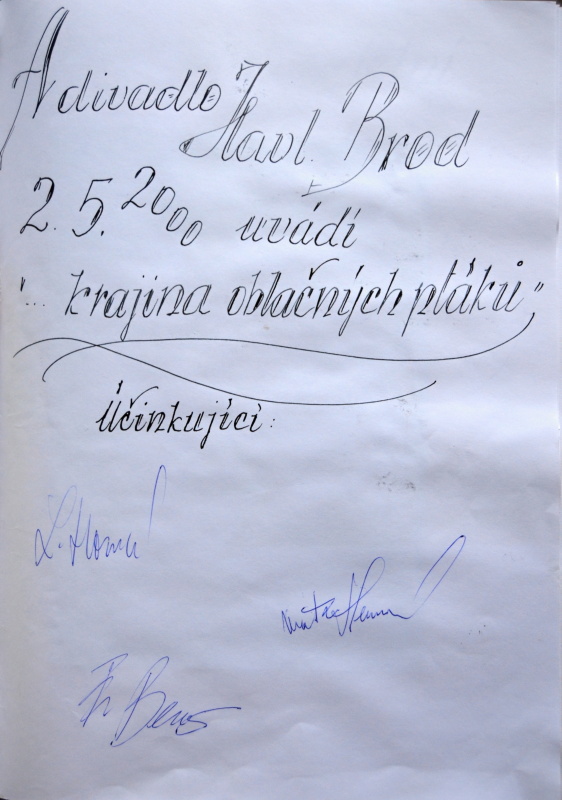 A divadlo
Havl. Brod
2. 5. 2000 uvádí
"... krajina oblačných ptáků"
Účinkující:
Beneš